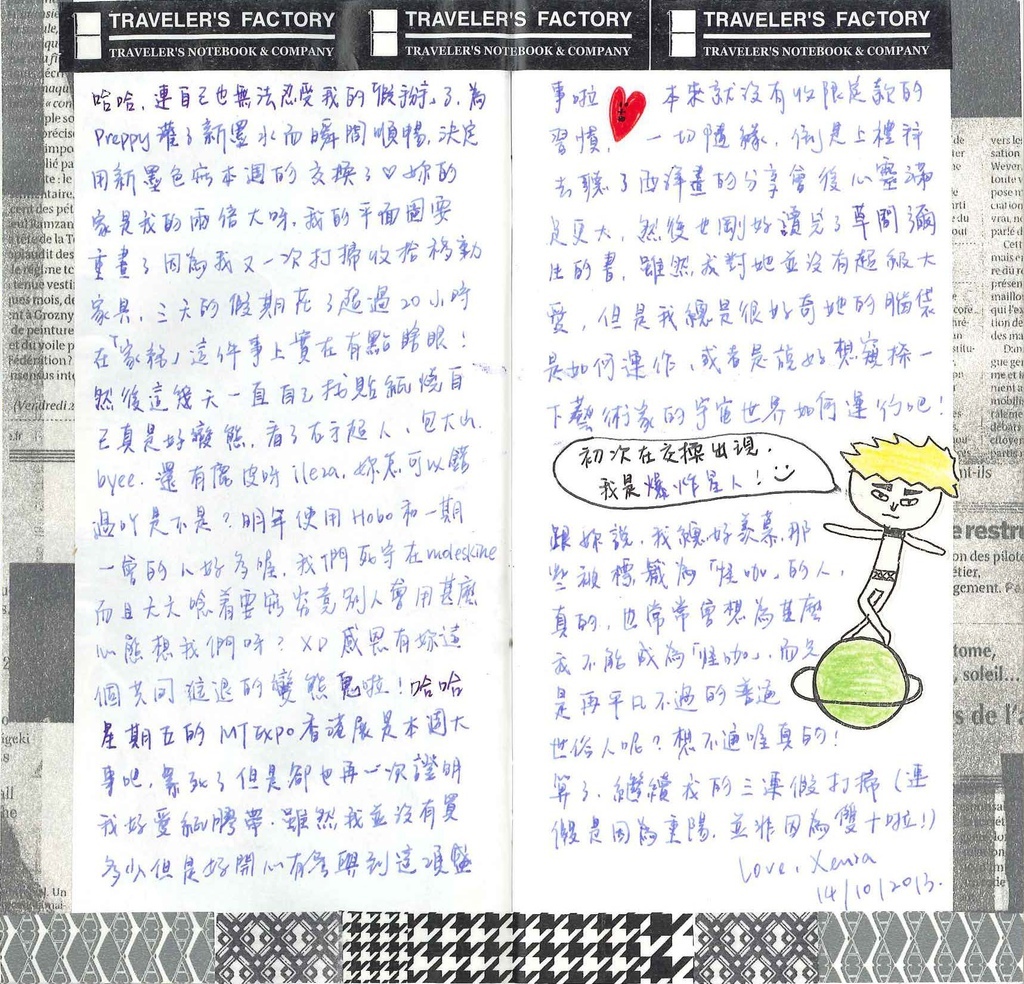 TRAVELER'S FACTORY
TRAVELER'S NOTEBOOK & COMPANY
TRAVELER'S FACTORY
TRAVELER'S NOTEBOOK & COMPANY
TRAVELER'S FACTORY
TRAVELER'S NOTEBOOK & COMPANY
哈哈，連自己也無法忍受我的「假掰」了，為
Preppy 灌了新墨水而瞬間順暢，決定
用新墨色寫本週的交換了♡妳的
家是我的兩倍大呀，我的平面圖要
重畫了因為我又一次打掃收拾移動
家具，三天的假期花了超過20小時
在「家務」這件事上實在有點瞎眼！
然後這幾天一直自己找貼紙燒自
己真是好變態，看了右手超人、包大山、
byee. 還有傑皮呀 ilera, 妳怎可以錯
過吖是不是？明年使用 Hobo 和一期
一會的人好多喔，我們死守在 moleskine
而且大大唸着要寫究竟別人會用甚麼
心態想我們呀？XD 感恩有妳這
個共同進退的變態鬼啦！哈哈
星期五的 MT EXPO 香港展是本週大
事吧，累死了但是卻也再一次證明
我好愛紙膠帶，雖然我並沒有買
多少但是好開心有參與到這項盛
事啦 本來就沒有收限定款的
習慣，一切隨緣，倒是上禮拜
去聽了西洋畫的分享會後心靈滿
足更大，然後也剛好讀完了草間彌
生的書，雖然我對她並沒有超級大
愛，但是我總是很好奇她的腦袋
是如何運作，或者是說好想窺探一
下藝術家的宇宙世界如何運行吧！
初次在交換出現，
我是爆炸星人！
跟妳說，我總好羨慕那
些被標籤為「怪咖」的人，
真的，也常常會想為甚麼
我不能成為「怪咖」，而只
是再平凡不過的普通
世俗人呢？想不通唯真的！
算了，繼續我的三連假打掃（連
假是因為重陽，並非因為雙十啦！）
Love, Xenia
14/10/2013.